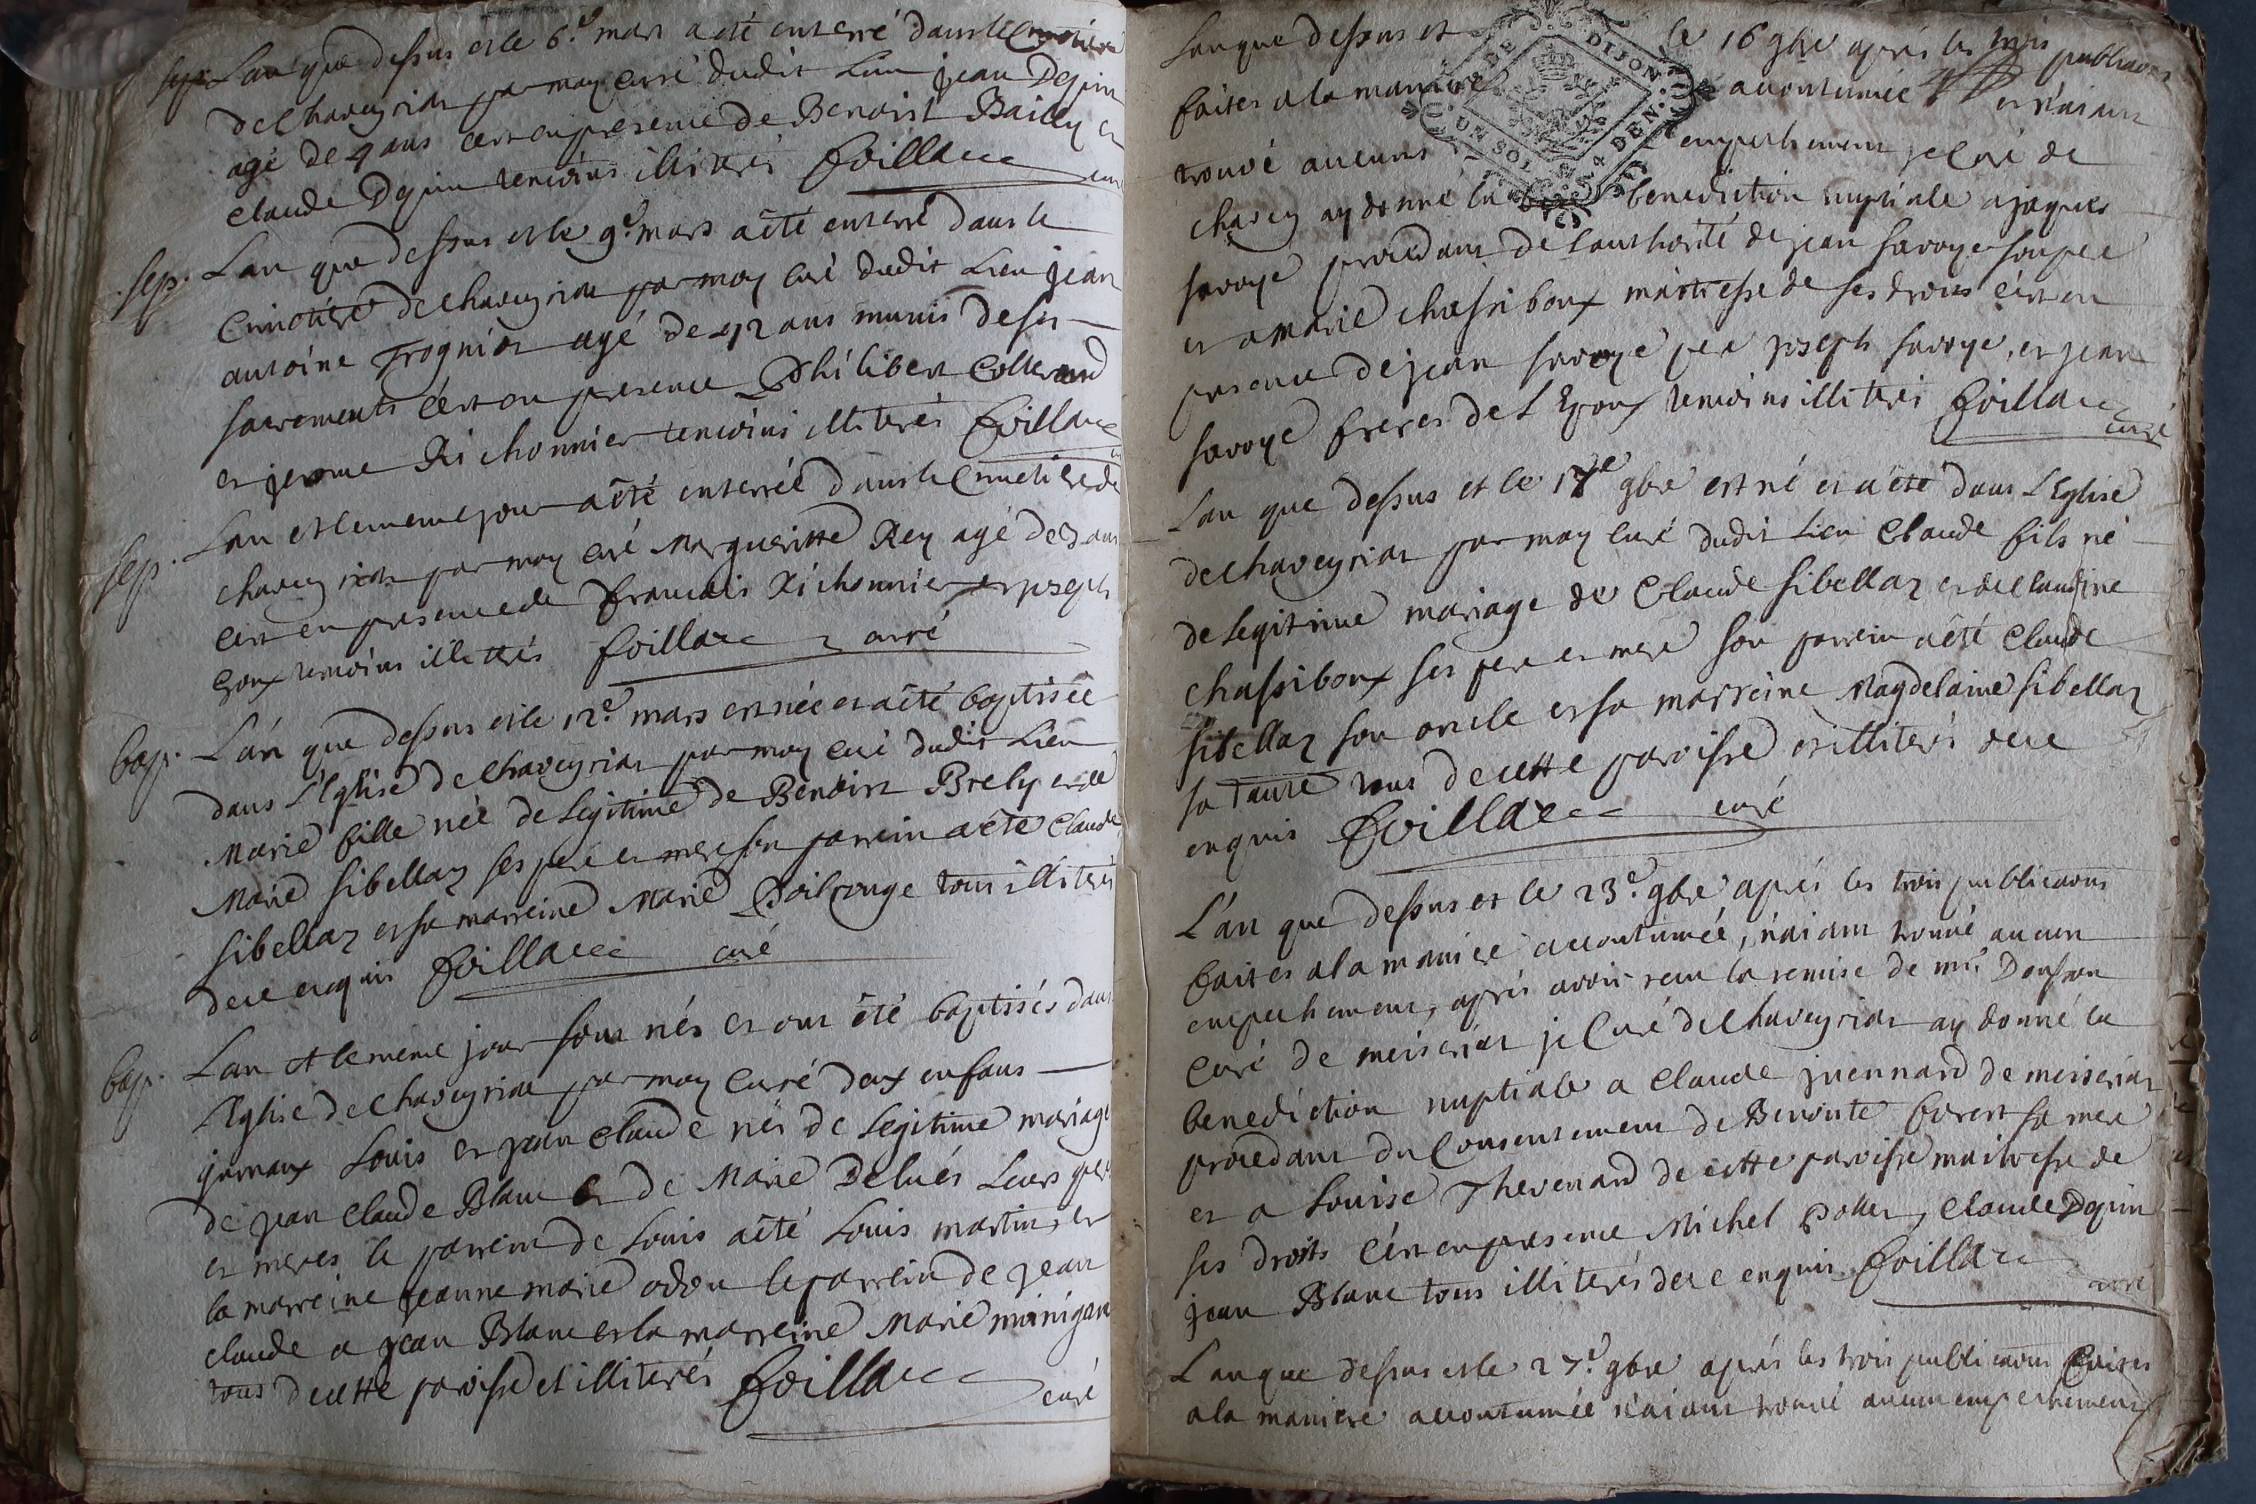 sep. Lan que dessus et le 6.e mars a été enterré dans le Cimetiere
de chaveyriat par moy curé dudit Lieu jean Dépin
agé de 4 ans cest en présence de Benoist Bailly et
claude Dépin temoins illiterés foillaee curé
sep. Lan que dessus et le 9.e mars a été enterré dans le
Cimetiere de chaveyriat par moy curé dudit Lieu jean
antoine Trognion agé de 42 ans munis de ses
sacrements cést en presence Philibert Colterand
et jerome Richonnier temoins illiterés foillaee
sep. Lan et le meme jour a été enterrée dans le Cimetiere de
chaveyriat par moy curé Margueritte Rey agé de 3 ans
cest en presence de francois Richonnier et joseph
temoins illiterés foillaee curé
bap. L'an que dessus et le 12.e mars est née et a été baptisée
dans l'Eglise de chaveyriat par moy curé dudit Lieu
Marie fille née de Legitime de Benoist Brely et de
Marie Sibellaz ses pere et mere son parrein a été Claude
Sibellaz et sa marreine Marie Poilrouge tous illiterés
de ce enquis foillaee curé
bap. Lan et le meme jour sont nés et ont été baptisés dans
L'Eglise de chaveyriat par moy curé deux enfans
jumaux Louis et jean claude nés de Legitime mariage
de jean claude Blanc et de Marie Delués Leurs pere
et meres le parrein de Louis a été Louis martin, et
la marreine jeanne marie odon le parrein de jean
claude a jean Blanc et la marreine Marie
tous de cette paroisse et illiterés foillaee curé
Lan que dessus et le 16 9bre aprés les trois publications
faites a la maniere accoutumée et n'aiant
trouvé aucuns empechement je curé de
chavey ay donné la benediction nuptiale a jaques
savoye procedant de lauthorité de jean savoye son pere
et a marie chassiboux maitresse de ses droits cést en
presence de jean savoye pere joseph savoye, et jean
savoye freres de L'Epoux temoins illiterés foillaee curé
GE DE DIJON UN SOL 4 DEN.
Lan que dessus et le 17e 9bre est né et a été dans L'Eglise
de chaveyriat par moy curé dudit Lieu Claude fils né
de Legitime mariage de Claude Sibellaz et de Claudine
chassiboux ses pere et mere son parrein a été Claude
Sibellaz son oncle et sa marreine Magdelaine Sibellaz
sa tante tous de cette paroisse et illiterés de ce
enquis foillaee curé
L'an que dessus et le 23.e 9bre aprés les trois publications
faites a la maniere accoutumée, n'aiant trouvé aucun
empechement, aprés avoir recu la remise de mr.
curé de meiseriat je Curé de Chaveyriat ay donné la
benediction nuptiale a Claude juennard de meiseriat
procedant du Consentement de Benoite borest sa mere
et a Louise Thevenard de cette paroisse maitresse de
ses droits cést en presence Michel Pollet, Claude Dépin
jean Blanc tous illiterés de ce enquis foillaee curé
Lan que dessus et le 27.e 9bre aprés les trois publications faites
a la maniere accoutumée n'aiant trouvé aucun empechement